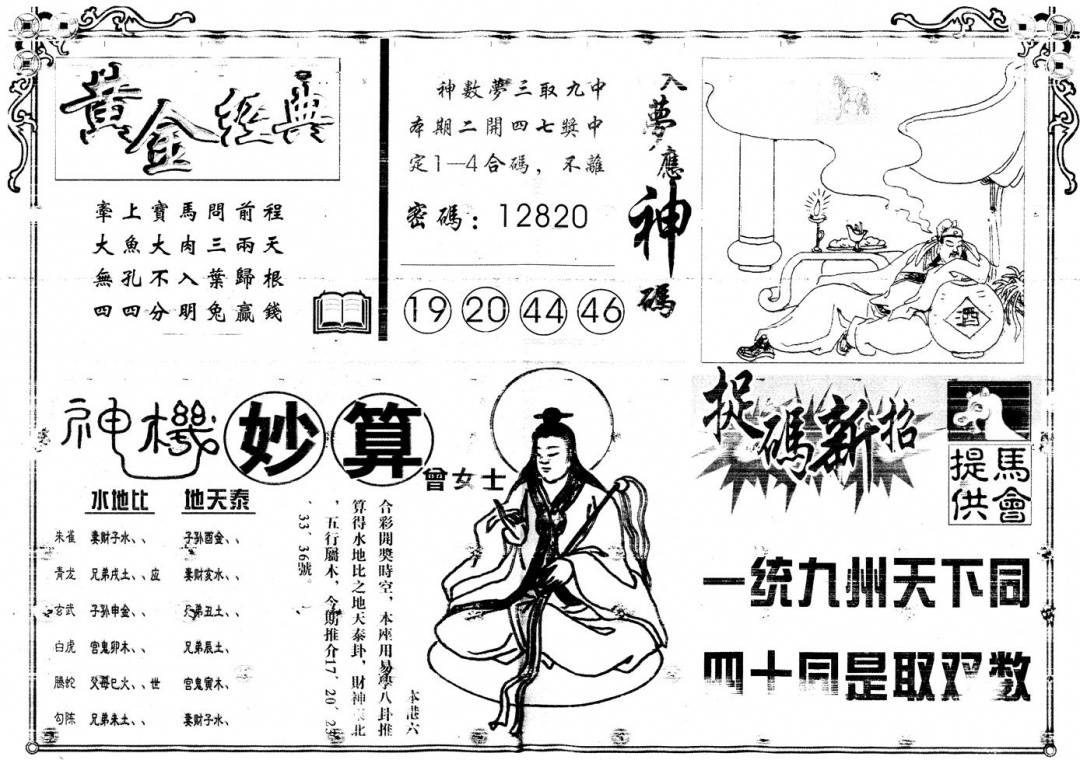 黄金經典
牽上寶馬問前程
大魚大肉三兩天
無孔不入葉歸根
四四分明兔贏錢
神數夢三取九中
本期二開四七獎中
定1—4合碼，不離
密碼：12820
19 20 44 46
入夢應神碼
酒
神機妙算
曾女士
水地比 地天泰
朱雀 妻財子水、、 子孙酉金、、
青龙 兄弟戌土、、应 妻財亥水、、
玄武 子孙申金、、 兄弟丑土、、
白虎 官鬼卯木、、 兄弟辰土、
騰蛇 父母巳火、、世 官鬼寅木、
勾陈 兄弟未土、、 妻財子水、
本港六
合彩開獎時空，本座用易學八卦推
算得水地比之地天泰卦，財神 北
，五行屬木，今期推介17、20、25
、33、36號。
捉碼新招
馬會提供
一统九州天下同
四十同是取双数